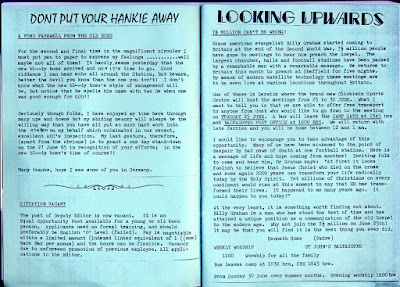 DON'T PUT YOUR HANKIE AWAY
A FOND FAREWELL FROM THE OLD BOSS
For the second and final time in the magnificent circular I
must put pen to paper to express my feelings
maybe not all of them! It hardly seems yesterday that the
new bl--dy boss arrived and now it's time to go. (Good
riddance I can hear echo all around the Station, but beware,
better the devil you know than the one you don't! I don't
know what the new bl--dy boss's style of management will
be, but notice that he spells his name with two Ws when one
was good enough for GOD!!
Seriously though folks, I have enjoyed my time here through
many ups and downs but my abiding memory will always be the
willing way that you have all put so much hard work into
the station on my behalf which culminated in our recent,
excellent AOC's inspection. My last gesture, therefore,
(apart from the obvious) is to grant a one day stand-down
on the 21 June 85 in recognition of your efforts; in the
new bl--dy boss's time of course!!
Many thanks, hope I see some of you in Germany.
SITUATION VACANT
The post of Deputy Editor is now vacant. It is an
ideal opportunity best available for a young or old keen
person. Applicants need no formal training, and should
preferably be English 'O' level (failed). Pay is negotiable
within a limited amount (indexed linked equivalent of 1
Mars Bar per annum) and the hours can be flexible. Vacancy
due to unforeseen promotion of previous employee. All applic-
ations to the Editor.
LOOKING UPWARDS
79 MILLION CAN'T BE WRONG!
Since American evangelist Billy Graham started coming to
Britain at the end of the Second World War, 79 million people
have gone to meetings to hear him preach the Gospel. The
largest churches, halls and football stadiums have been packed
by a remarkable man with a remarkable message. He returns to
Britain this month to preach at Sheffield for five nights.
By means of modern satellite technology these meetings are
to be seen live at various locations throughout Britain.
One of these is Lerwick where the brand new Clickimin Sports
Centre will host the meetings from 25 to 30 JUNE. What I
want to tell you is that we are able to offer free transport
to anyone from Saxa who would like to go to the meeting on
TUESDAY 25 JUNE. A bus will leave the CAMP GATE at 1545 hrs
and BALTASOUND POST OFFICE at 1600 HRS. We will return with
late ferries and you will be home between 12 and 1 am.
I would like to encourage you to take advantage of this
opportunity. Many of us have been sickened to the point of
despair by that news of death at one football stadium. Here is
a message of life and hope coming from another! Inviting folk
to come and hear him, Dr Graham says: "At first it looks
foolish to believe that Jesus Christ who died on the cross
and rose again 2000 years can transform your life radically
today by the Holy Spirit. Yet millions of Christians on every
continent would rise at this moment to say that HE has trans-
formed their lives. It happened to me many years ago. It
could happen to you today!"
At the very least, it is something worth finding out about.
Billy Graham is a man who has stood the test of time and has
attained a unique position as a communicator of the old Gospel
to the modern age. Why not join the 79 million on June 25th!
It may be that you will find it is the best thing you ever did.
Kenneth Ross (Padre)
WEEKLY WORSHIP ST JOHN'S BALTASOUND
1100 Worship for all the family
Bus leaves camp at 1030 hrs, SMQ 1045 hrs.
From Sunday 30 June over summer months. Evening worship 1800 hrs